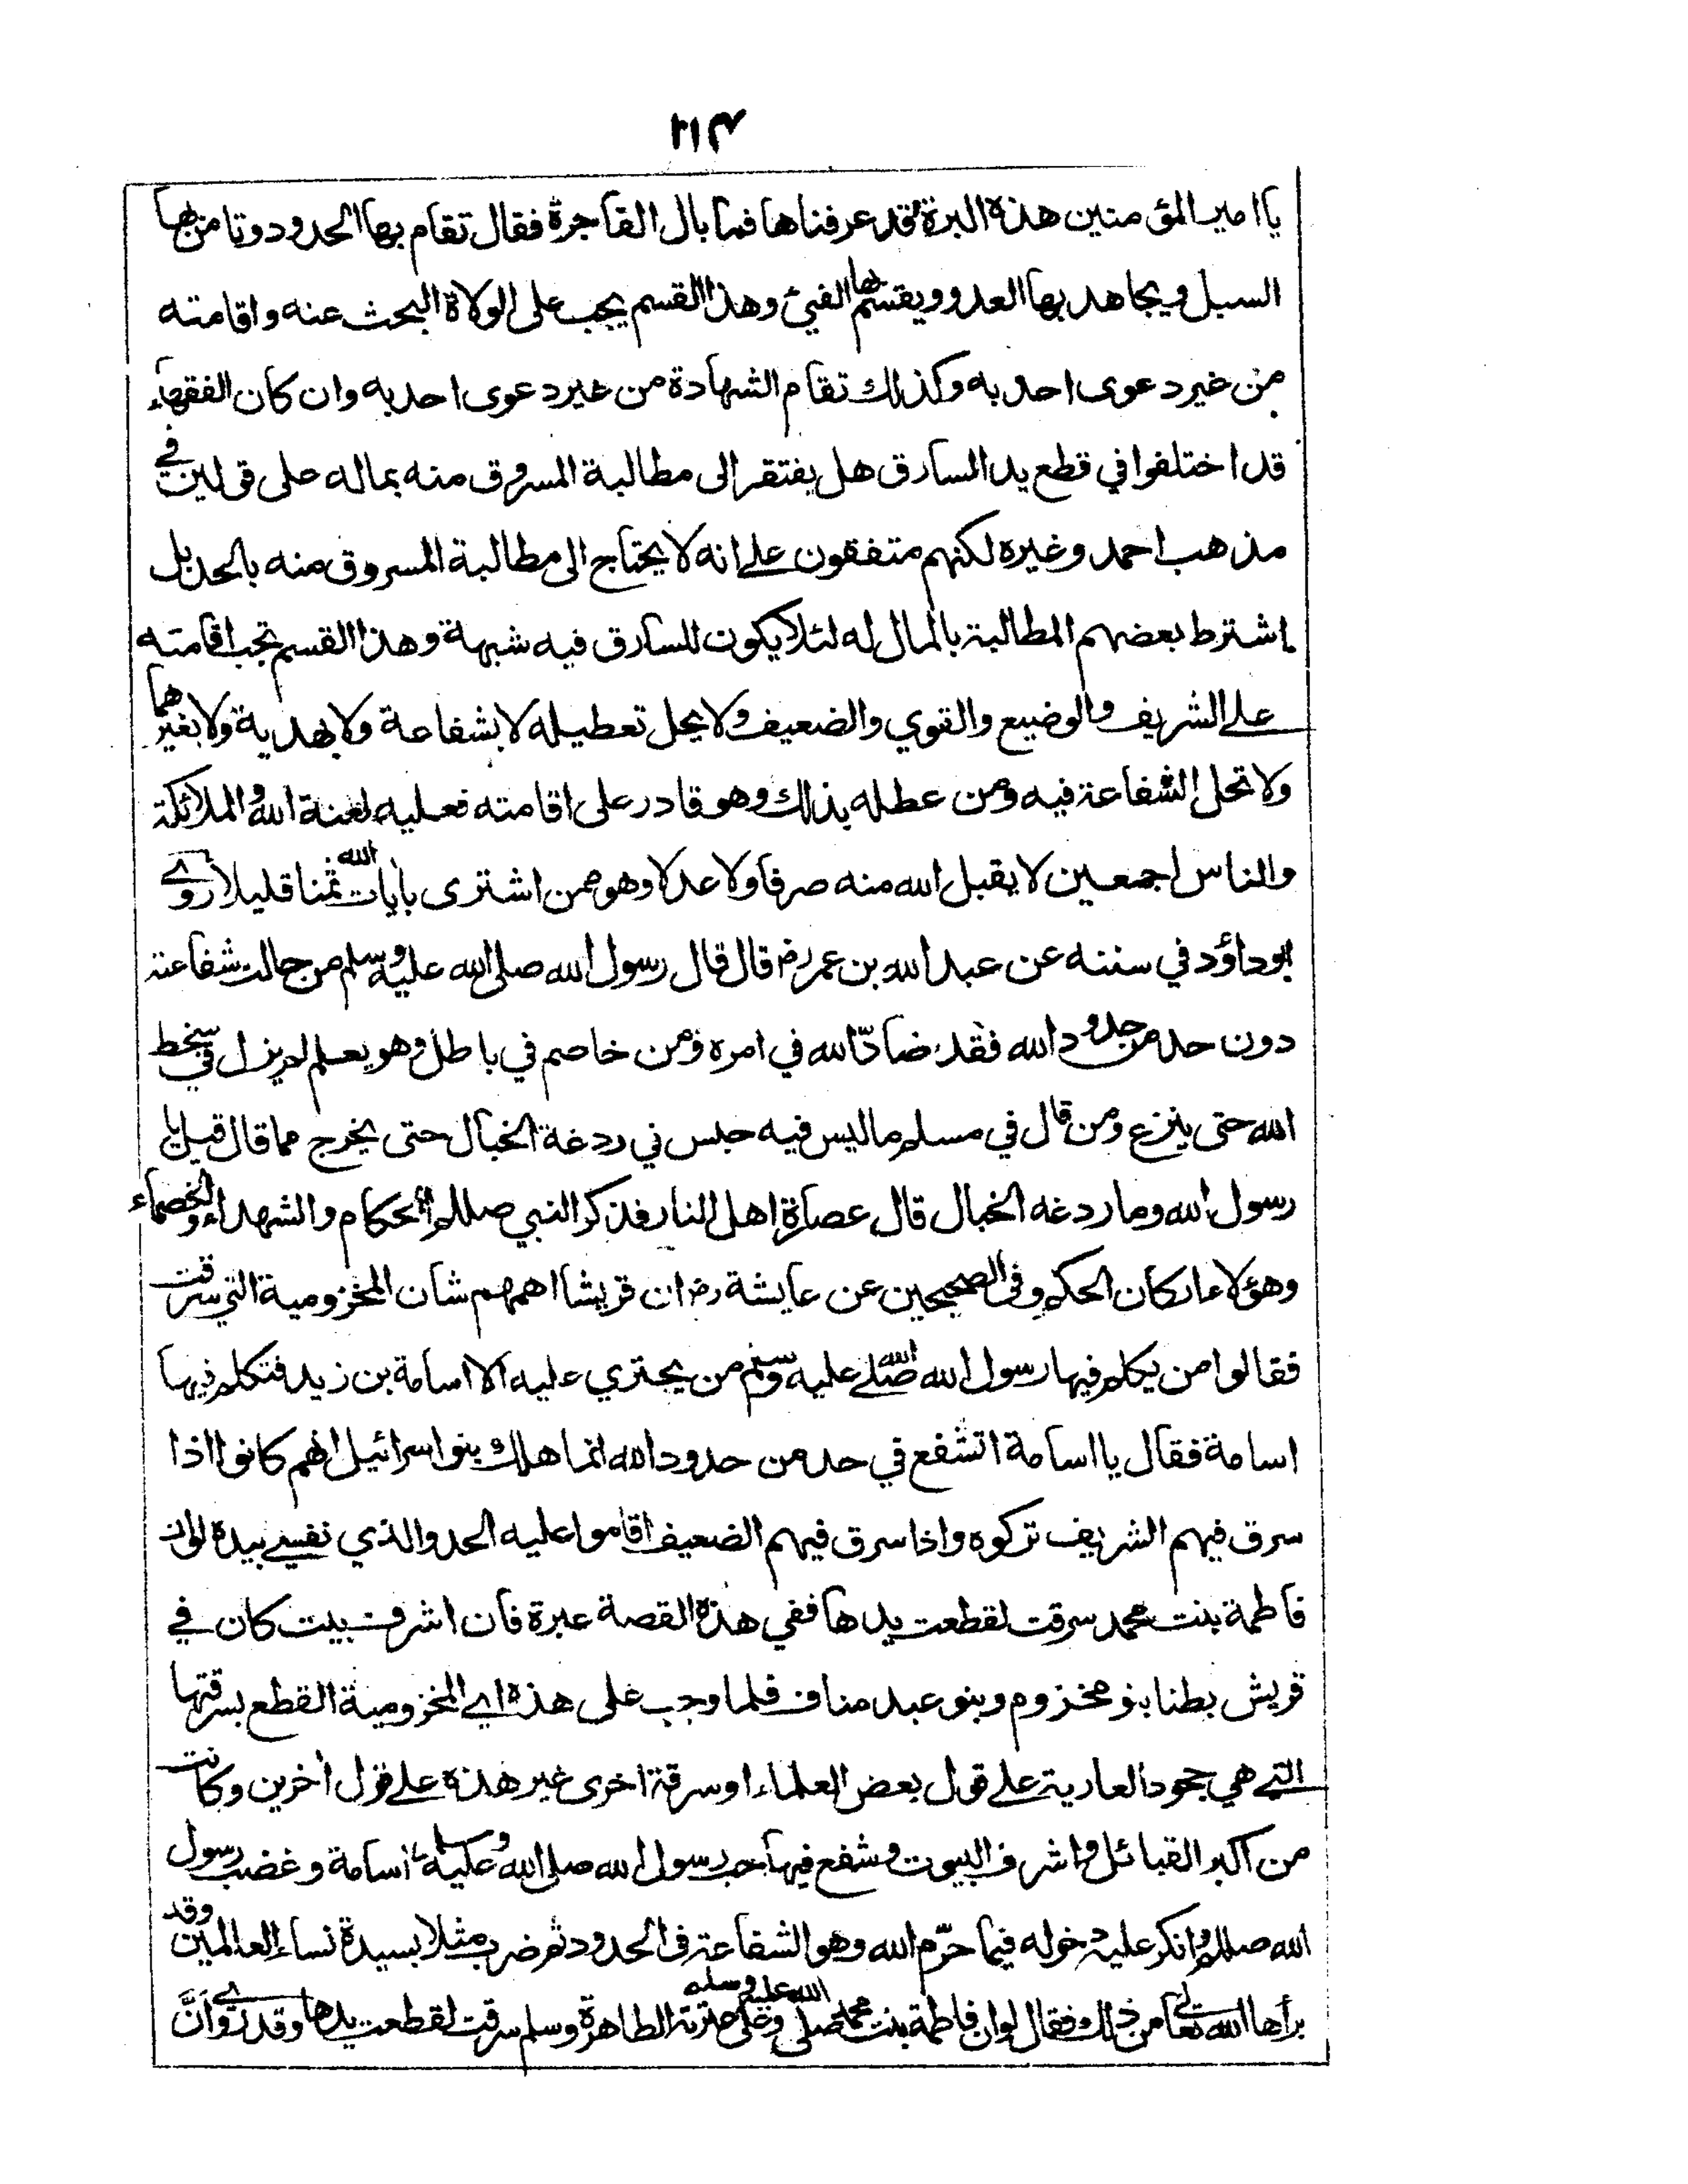 ۴۱۲
يا امير المؤمنين هذه البرة قد عرفناها فما بال الفاجرة فقال تقام بها الحدود وتامن بها
السبل ويجاهد بها العدو ويقسم بها الفيئ وهذا القسم يجب على الولاة البحث عنه واقامته
من غير دعوى احد به وكذلك تقام الشهادة من غير دعوى احد به وان كان الفقهاء
قد اختلفوا في قطع يد السارق هل يفتقر الى مطالبة المسروق منه بماله على قولين في
مذهب احمد وغيره لكنهم متفقون على انه لا يحتاج الى مطالبة المسروق منه بالحد بل
اشترط بعضهم المطالبة بالمال له لئلا يكون للسارق فيه شبهة وهذا القسم تجب اقامته
على الشريف والوضيع والقوي والضعيف ولا يحل تعطيله لا بشفاعة ولا بهدية ولا بغيرهما
ولا تحل الشفاعة فيه ومن عطله بذلك وهو قادر على اقامته فعليه لعنة الله والملائكة
والناس اجمعين لا يقبل الله منه صرفا ولا عدلا وهو ممن اشترى بايات الله ثمنا قليلا روى
ابو داؤد في سننه عن عبد الله بن عمر رض قال قال رسول الله صلى الله عليه وسلم من حالت شفاعته
دون حد من حدود الله فقد ضادّ الله في امره ومن خاصم في باطل وهو يعلم لم يزل في سخط
الله حتى ينزع ومن قال في مسلم ما ليس فيه حبس في ردغة الخبال حتى يخرج مما قال قيل يا
رسول الله وما ردغه الخبال قال عصارة اهل النار فذكر النبي صللم الحكام والشهداء والخصماء
وهؤلاء اركان الحكم وفي الصحيحين عن عايشة رض ان قريشا اهمهم شان المخزومية التي سرقت
فقالوا من يكلم فيها رسول الله صلى الله عليه وسلم من يجتري عليه الا اسامة بن زيد فتكلم فيها
اسامة فقال يا اسامة اتشفع في حد من حدود الله انما هلك بنو اسرائيل انهم كانوا اذا
سرق فيهم الشريف تركوه واذا سرق فيهم الضعيف اقاموا عليه الحد والذي نفسي بيده لو ان
فاطمة بنت محمد سرقت لقطعت يدها ففي هذه القصة عبرة فان اشرف بيت كان في
قريش بطنا بنو مخزوم وبنو عبد مناف فلما وجب على هذه اي المخزومية القطع بسرقتها
التي هي جحود العارية على قول بعض العلماء او سرقة اخرى غير هذه على قول آخرين وكانت
من اكبر القبائل واشرف البيوت وشفع فيها حب رسول الله صلى الله عليه وسلم اسامة وغضب رسول
الله صللم وانكر عليه دخوله فيما حرّم الله وهو الشفاعة في الحدود ثم ضرب مثلا بسيدة نساء العالمين وقد
برأها الله تعالى من ذلك فقال لو ان فاطمة بنت محمد صلى الله عليه وسلم وعلى عترته الطاهرة وسلم سرقت لقطعت يدها وقد روى أنَّ